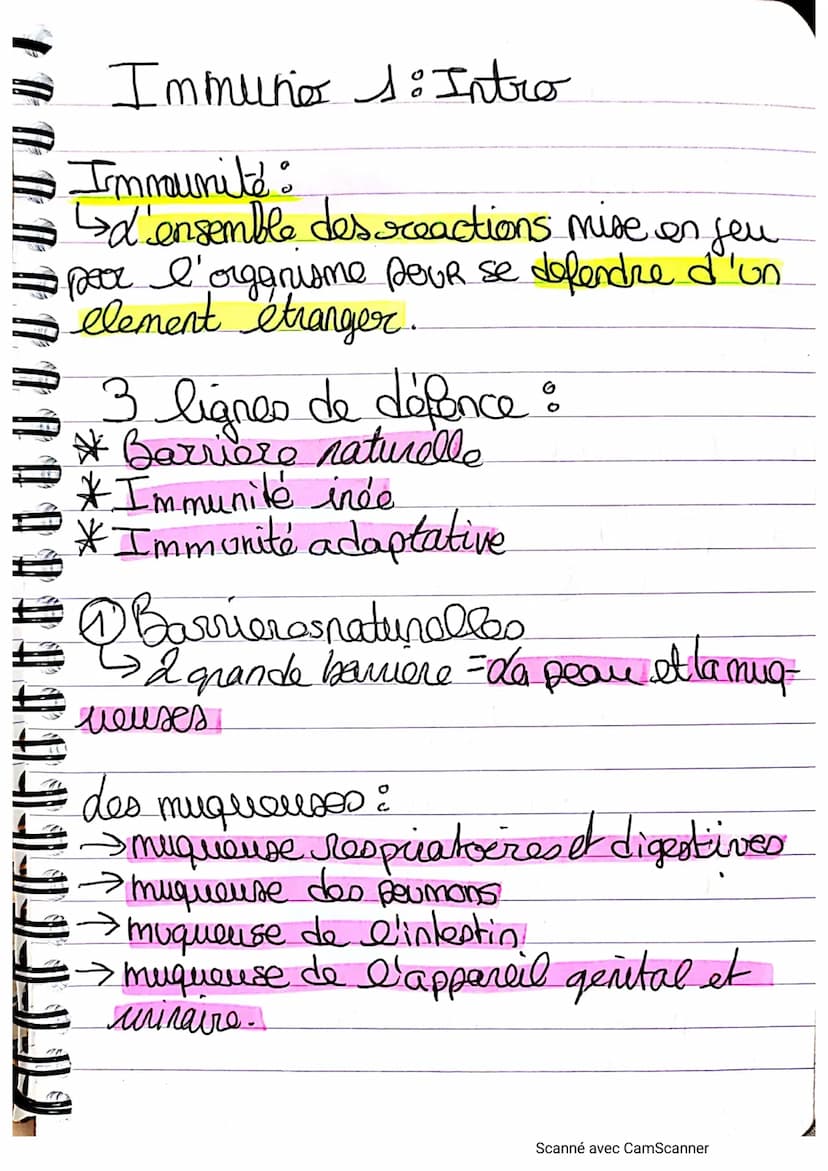 Immunio 1: Intro
Immunité :
↳ L'ensemble des reactions mise en jeu
par l'organisme pour se defendre d'un
element étranger.
3 lignes de défence :
* Barriere naturelle
* Immunité inée
* Immunité adaptative
① Barrieres naturelles
↳ 2 grande barrière = La peau et la muq-
ueuses
Les muqueuses :
→ muqueuse respiratoires et digestives
→ muqueuse des poumons
→ muqueuse de l'intestin
→ muqueuse de l'appareil genital et
urinaire.
Scanné avec CamScanner